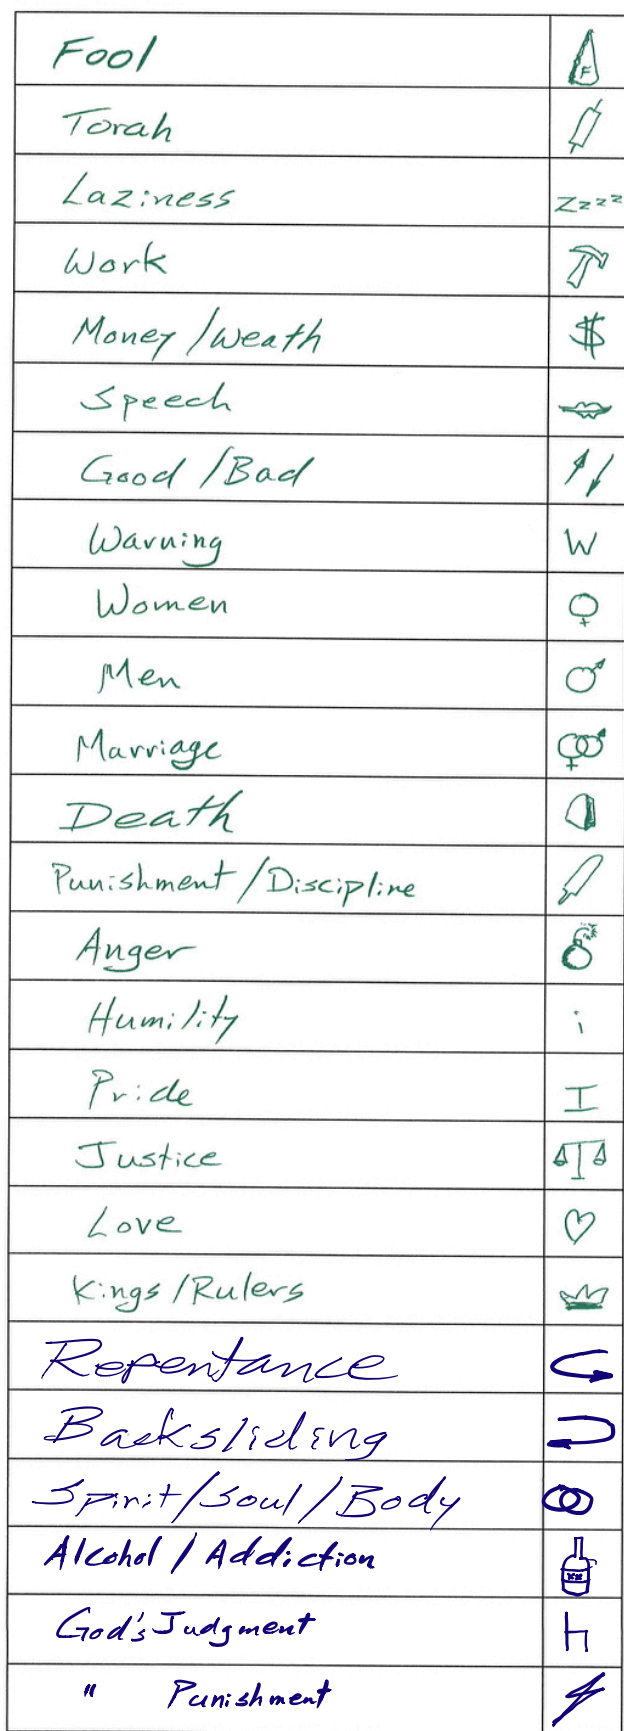 Fool F
Torah
Laziness Zzzzz
Work
Money/Weath $
Speech
Good/Bad
Warning W
Women
Men
Marriage
Death
Punishment/Discipline
Anger
Humility i
Pride I
Justice
Love
Kings/Rulers
Repentance
Backsliding
Spirit/Soul/Body
Alcohol/Addiction xx
God's Judgment
" Punishment